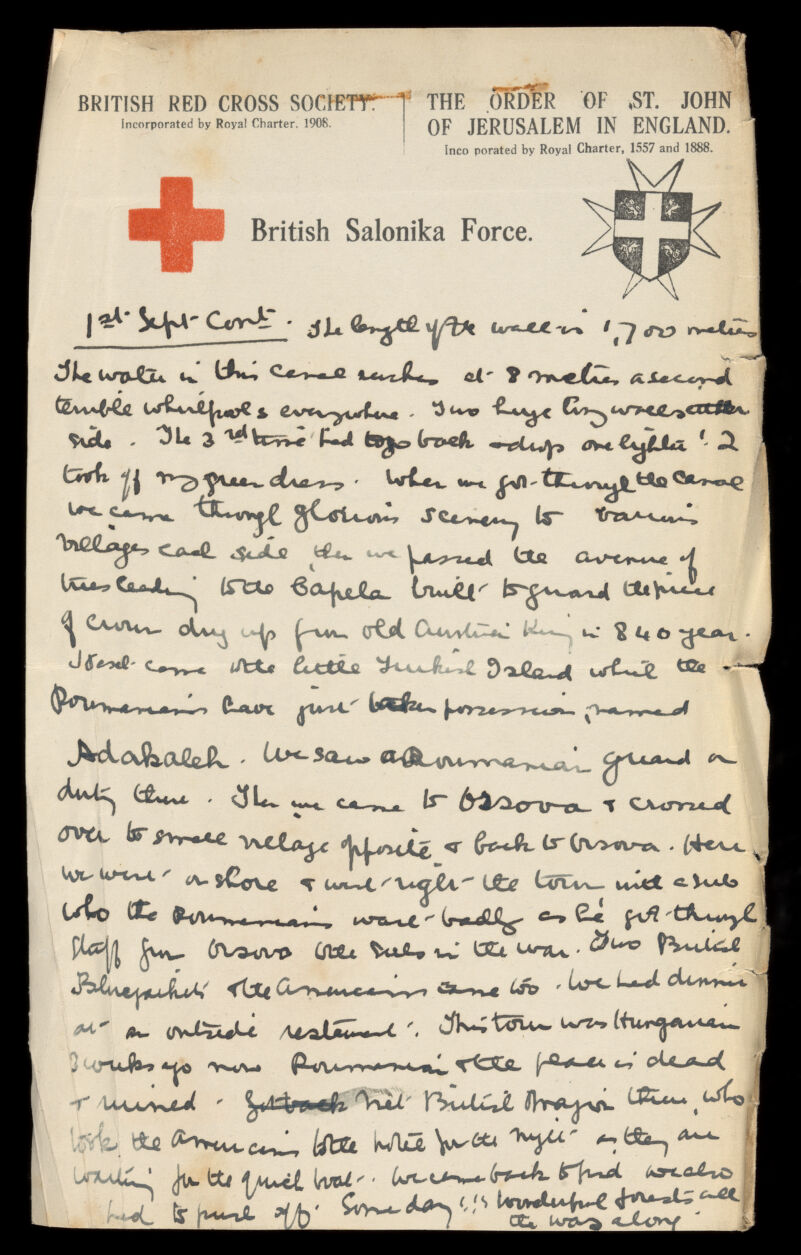 BRITISH RED CROSS SOCIETY.
Incorporated by Royal Charter. 1908.
THE ORDER OF ST. JOHN
OF JERUSALEM IN ENGLAND.
Inco porated by Royal Charter, 1557 and 1888.
British Salonika Force.
1st Sept Cont. The length of the wall is 1,700 metres
The water in this canal rushes at 8 metres a second
terrible whirlpools everywhere. Two huge long walls either
side. The 3rd time had to go back & drop one lighter! I
took off my green dress. When we got through the Canal
we came through glorious scenery to various
villages each side, then we passed the avenue of
trees leading to the Capela built to guard the piece
of crown dug up from old Austrian King in 840 year.
Next came the little Turkish Island which the
Roumanians have just taken possession, named
Adakaleh. We saw a Roumanian guard on
duty there. Then we came to Orsova & crossed
over to small village opposite & back to Orsova. Here
we went on shore & went right the town with a sub
who the Roumanians want badly as he got through
staff from Orsova to the in the war. Two British
Bluejackets & the Americans came too. We had dinner
at an outside restaurant. This town was Hungarian
3 weeks ago now Roumanian & the place is dead
& ruined. Got back Met British Major there, who
took the Americans to the hotel for the night as they are
waiting for the quick boat. We came back to find we also
had to push off. Some day!!! Wonderful forests all
the way along.